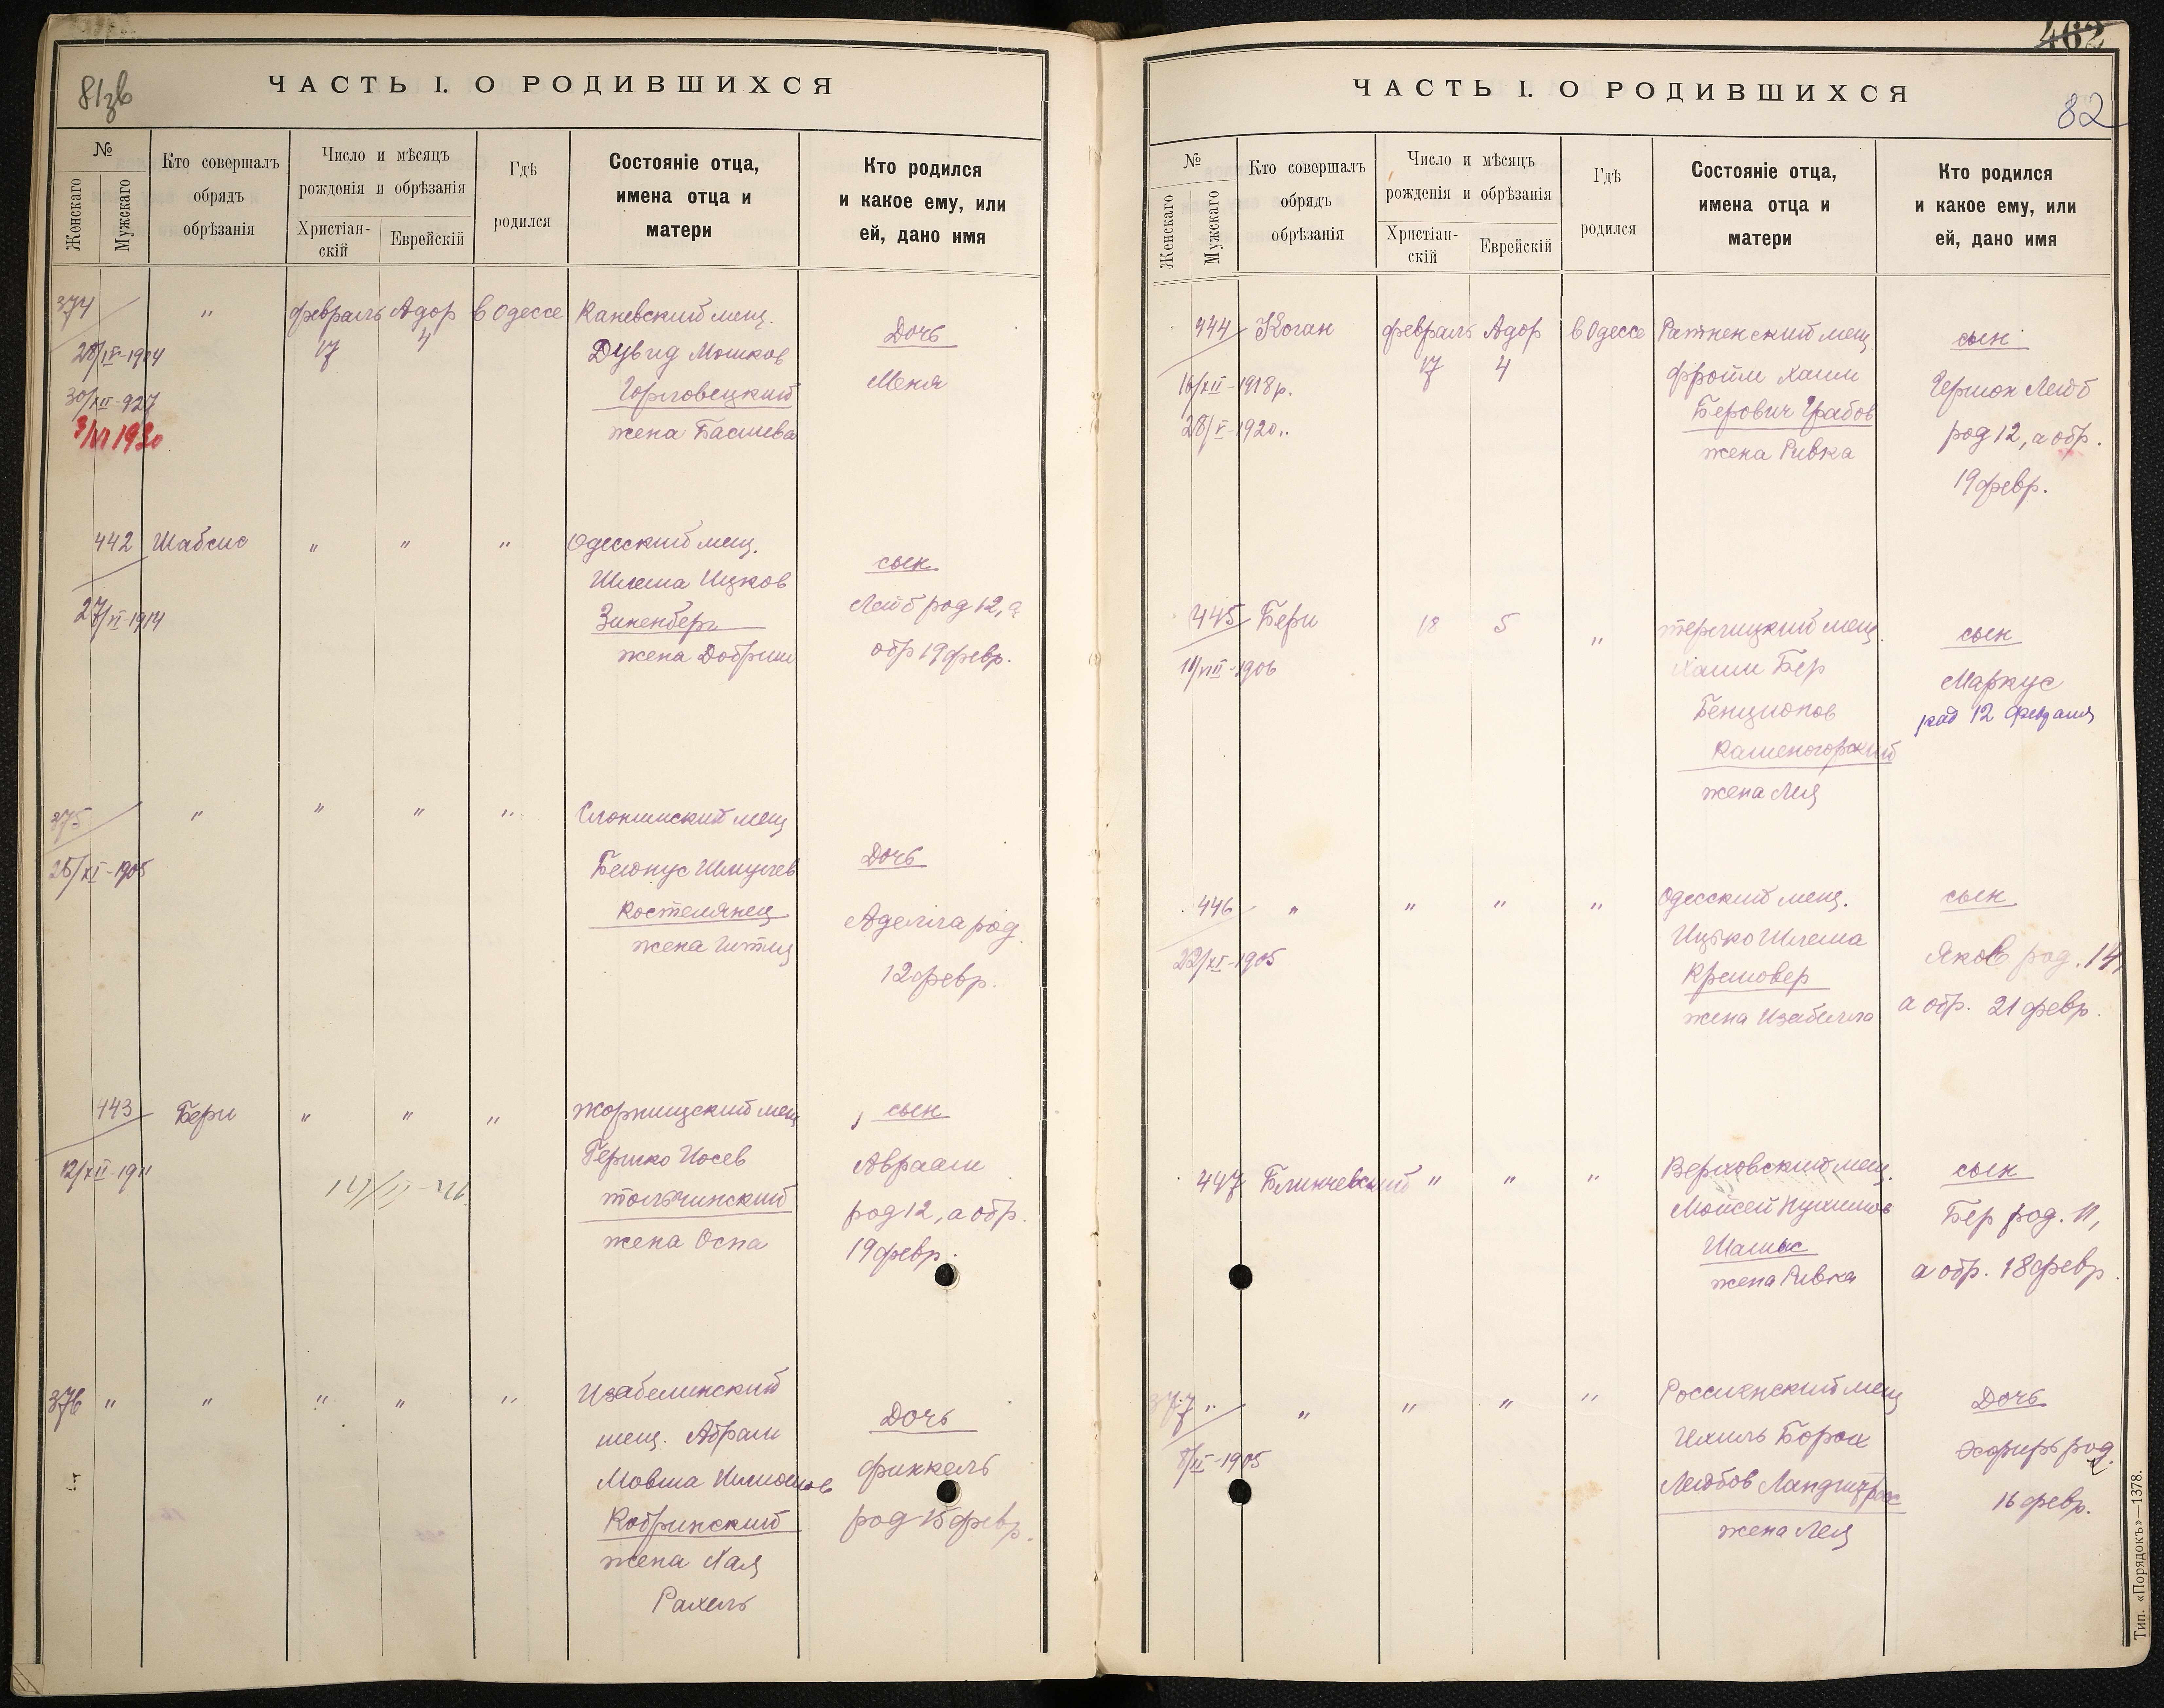 81зв
ЧАСТЬ I. О РОДИВШИХСЯ
№
Женскаго
Мужскаго
Кто совершалъ
обрядъ
обрѣзанія
Число и мѣсяцъ
рожденія и обрѣзанія
Христіан-
скій
Еврейскій
Гдѣ
родился
Состояніе отца,
имена отца и
матери
Кто родился
и какое ему, или
ей, дано имя
374 " февраль Адор в Одессе Каневский мещ.
17 4 Дувид Мошков Дочь
30/XII-927 Меня
3/VI 1930 жена Басшева
442 Шабсис " " " Одесский мещ.
Шлема Ицков сын
27/VI-1914 Зикенберг Лейб род 12, а
жена Добриш обр 19 февр.
375 " " " " Слонимский мещ
25/XI-1905 Шмулев Дочь
Костелянец Аделла род
жена 12 февр.
443 Бери " " " мещ сын
12/XII-1911 Гершко Иосев Авраам
тольчинский род 12, а обр.
жена Оспа 19 февр.
376 " " " " " Изабелинский
мещ. Абрам Дочь
Мовша финкель
Кобринский род 15 февр.
жена Хая
Рахель
462
82
ЧАСТЬ I. О РОДИВШИХСЯ
№
Женскаго
Мужскаго
Кто совершалъ
обрядъ
обрѣзанія
Число и мѣсяцъ
рожденія и обрѣзанія
Христіан-
скій
Еврейскій
Гдѣ
родился
Состояніе отца,
имена отца и
матери
Кто родился
и какое ему, или
ей, дано имя
444 Коган февраль Адор в Одессе Ратненский мещ. сын
16/XII-1918 р. 17 4 фройм Хаим Гершон Лейб
28/V-1920 " Берович Грабов род 12, а обр.
жена Ривка 19 февр.
445 Бери 18 5 " мещ. сын
11/VIII-1906 Хаим Бер Маркус
Бенционов род 12 февраля
Каменогорский
жена Лея
446 " " " " Одесский мещ. сын
22/XI-1905 Ицько Шлема Яков род. 14,
жена Изабелла а обр. 21 февр.
447 Блинчевский " " " Верховский мещ. сын
Мойсей Бер род. 11,
Шамис а обр. 18 февр.
жена Ривка
377 " " " " " Россиенский мещ Дочь
Ихиль Борох Эсфирь род.
Лейбов 16 февр.
жена Лея
Тип. «Порядокъ»—1378.